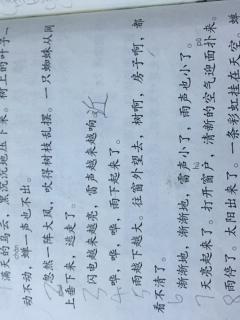 满天的乌云,黑沉沉地压下来。树上的叶子
chán
动不动,蝉一声也不出。
2忽然一阵大风,吹得树枝乱摆。一只蜘蛛从网
上垂下来,逃走了。
3闪电越来越亮,雷声越来越响
近
4哗,哗,哗,雨下起来了。
5雨越下越大。往窗外望去,树啊,房子啊,都
看不清了。
6渐渐地,渐渐地,雷声小了,雨声也小了。
hù pū
7天亮起来了。打开窗户,清新的空气迎面扑来。
8雨停了。太阳出来了。一条彩虹挂在天空。蝉